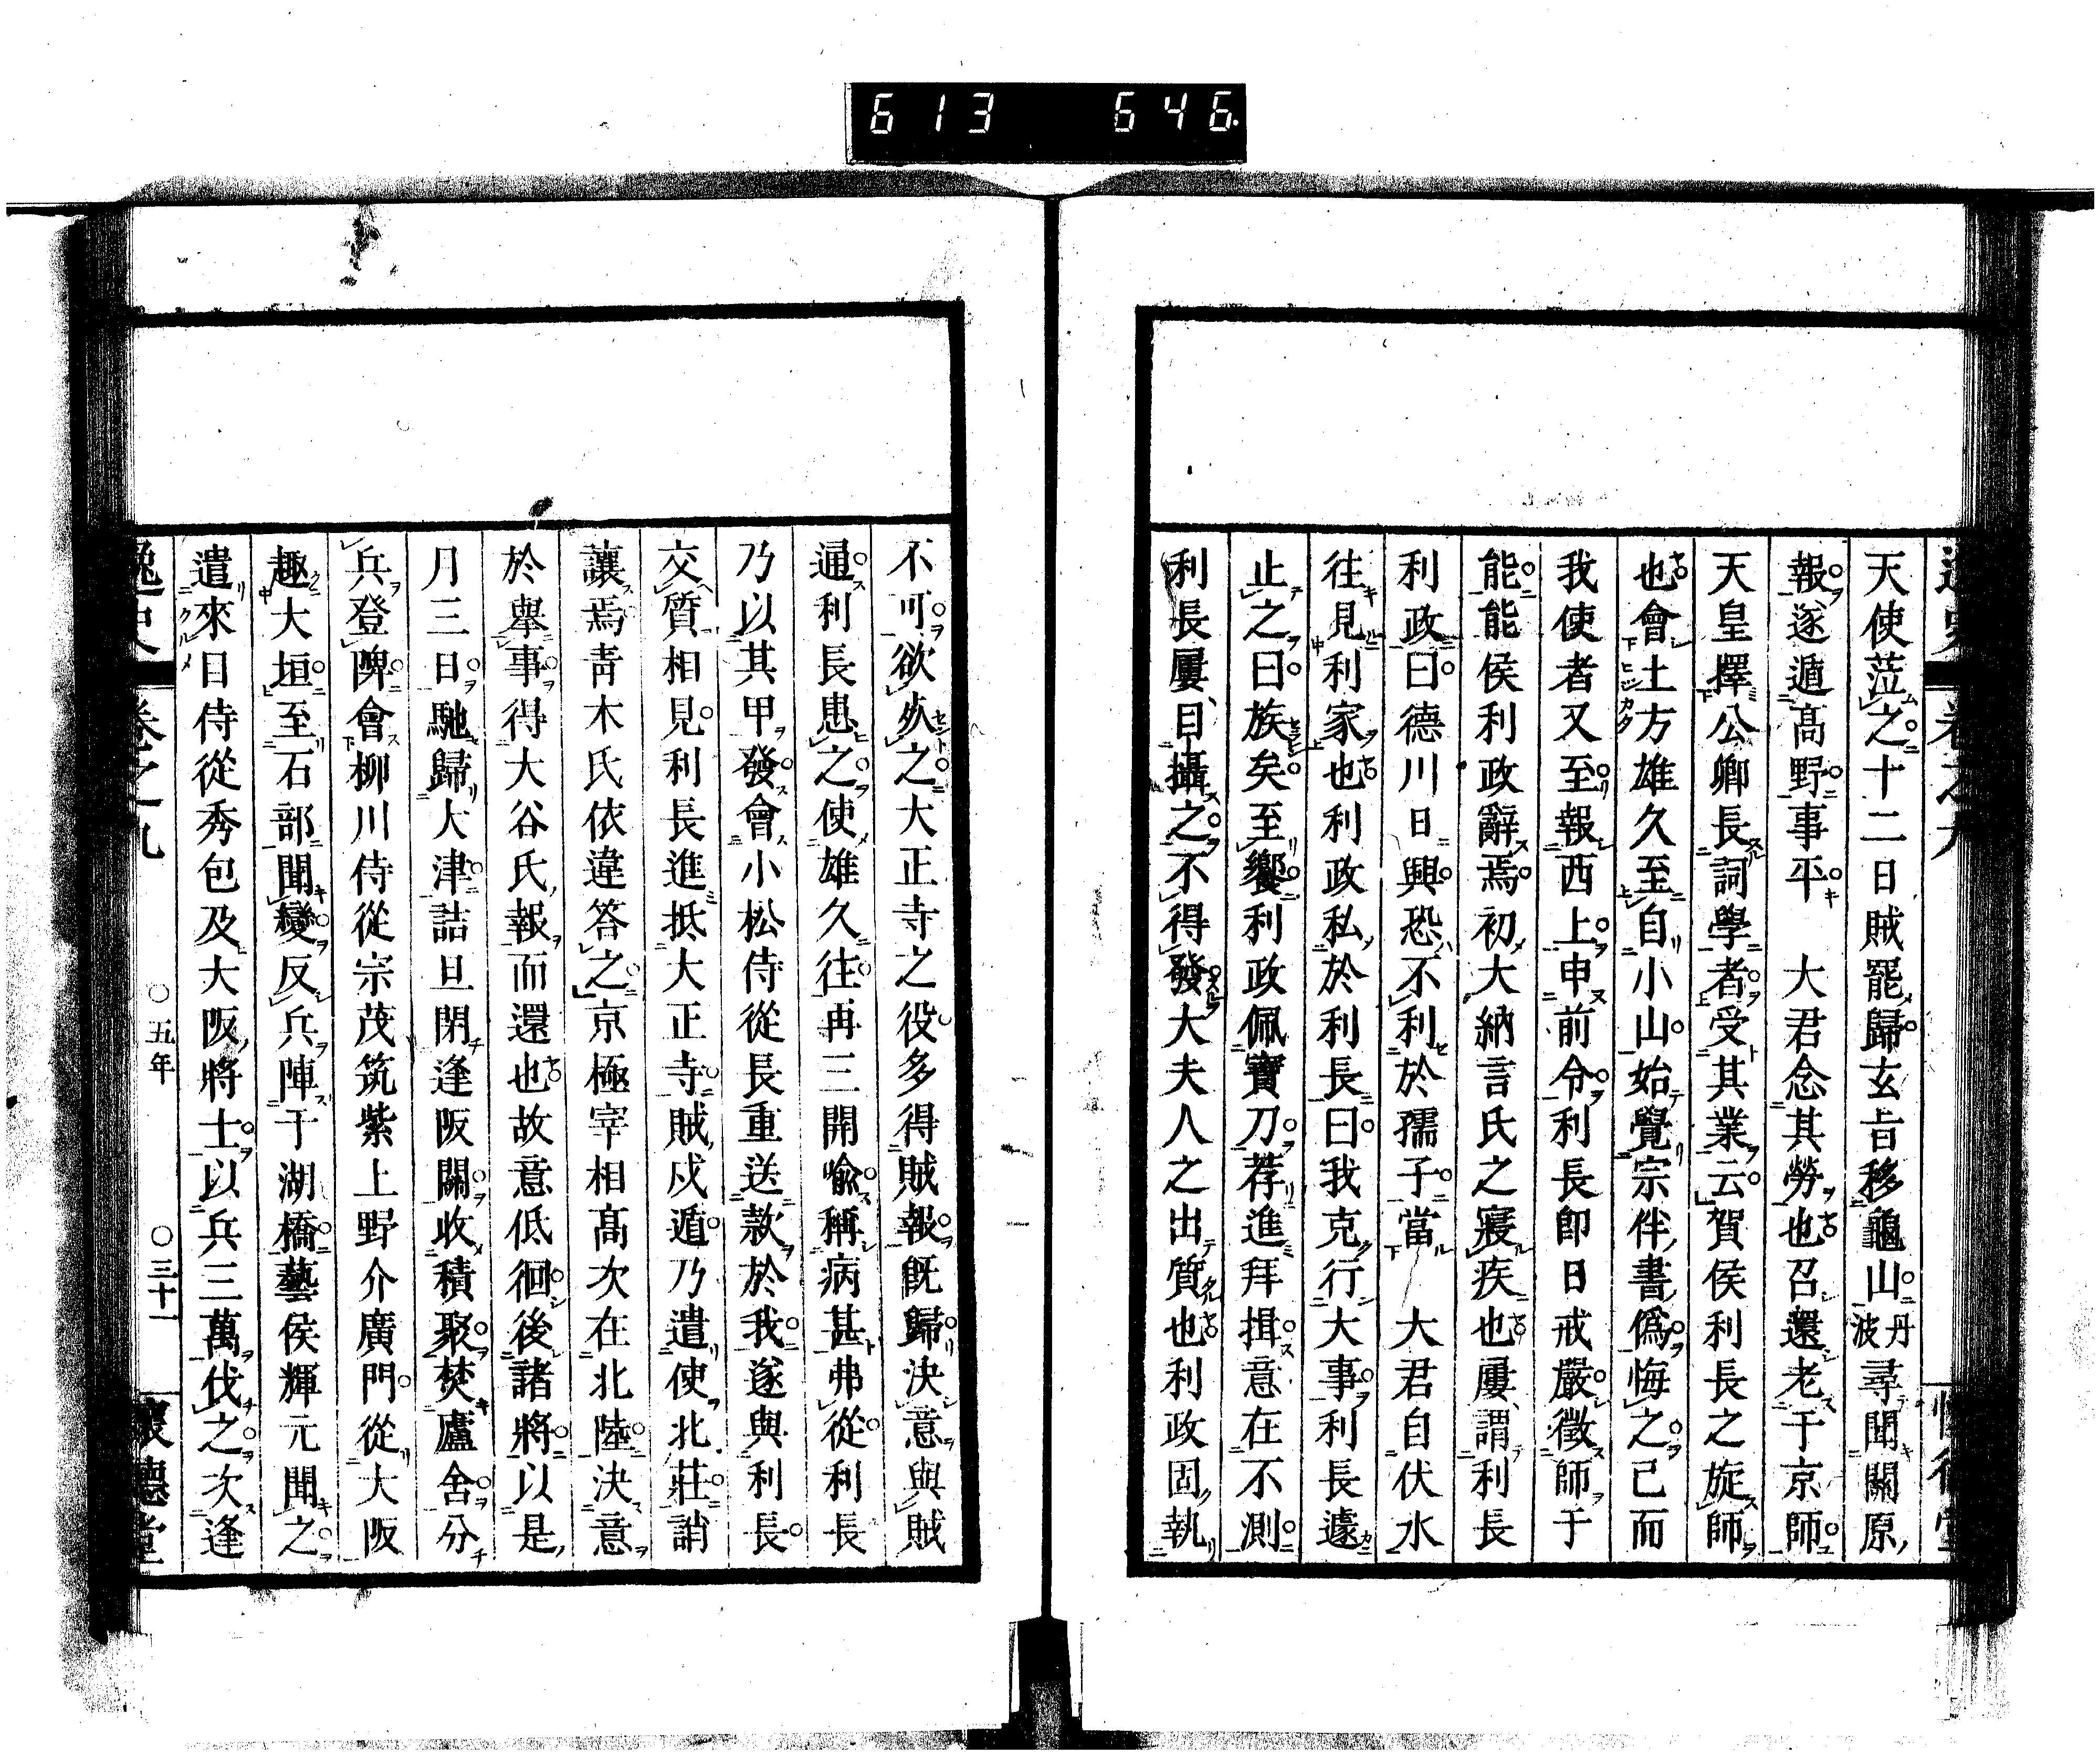 613 646
天使莅之十二日賊罷歸玄旨移龜山丹波尋聞關原
報遂遁高野事平 大君念其勞也召還老于京師
天皇擇公卿長詞學者受其業云賀侯利長之旋師
也會土方雄久至自小山始覺宗伴書僞悔之已而
我使者又至報西上申前令利長即日戒嚴徵師于
能能侯利政辭焉初大納言氏之寢疾也屢謂利長
利政曰德川日興恐不利於孺子當 大君自伏水
往見利家也利政私於利長曰我克行大事利長遽
止之曰族矣至饗利政佩寶刀荐進拜揖意在不測
利長屢目攝之不得發大夫人之出質也利政固執
不可欲从之大正寺之役多得賊報旣歸決意與賊
通利長患之使雄久往再三開喩稱病甚弗從利長
乃以其甲發會小松侍從長重送款於我遂與利長
交質相見利長進抵大正寺賊戍遁乃遣使北莊誚
讓焉靑木氏依違答之京極宰相高次在北陸決意
於擧事得大谷氏報而還也故意低徊後諸將以是
月三日馳歸大津詰旦閉逢阪關收積聚焚廬舍分
兵登陴會柳川侍從宗茂筑紫上野介廣門從大阪
趣大垣至石部聞變反兵陣于湖橋藝侯輝元聞之
遣來日侍從秀包及大阪將士以兵三萬伐之次逢
逸史 卷之九 五年 三十一 懷德堂